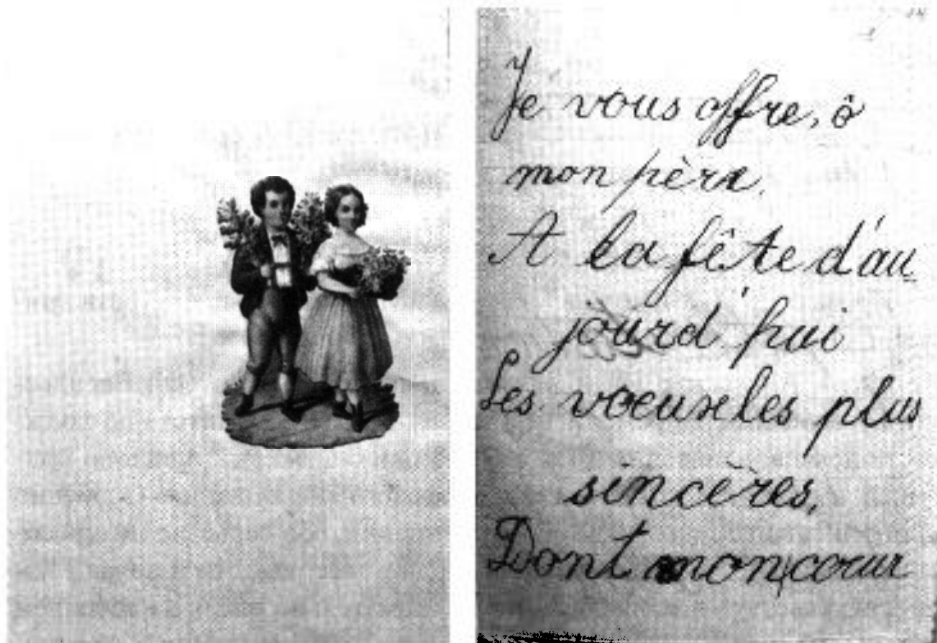 Je vous offre, ô
mon père,
A la fête d'au-
jourd'hui
Les voeux les plus
sincères,
Dont mon coeur